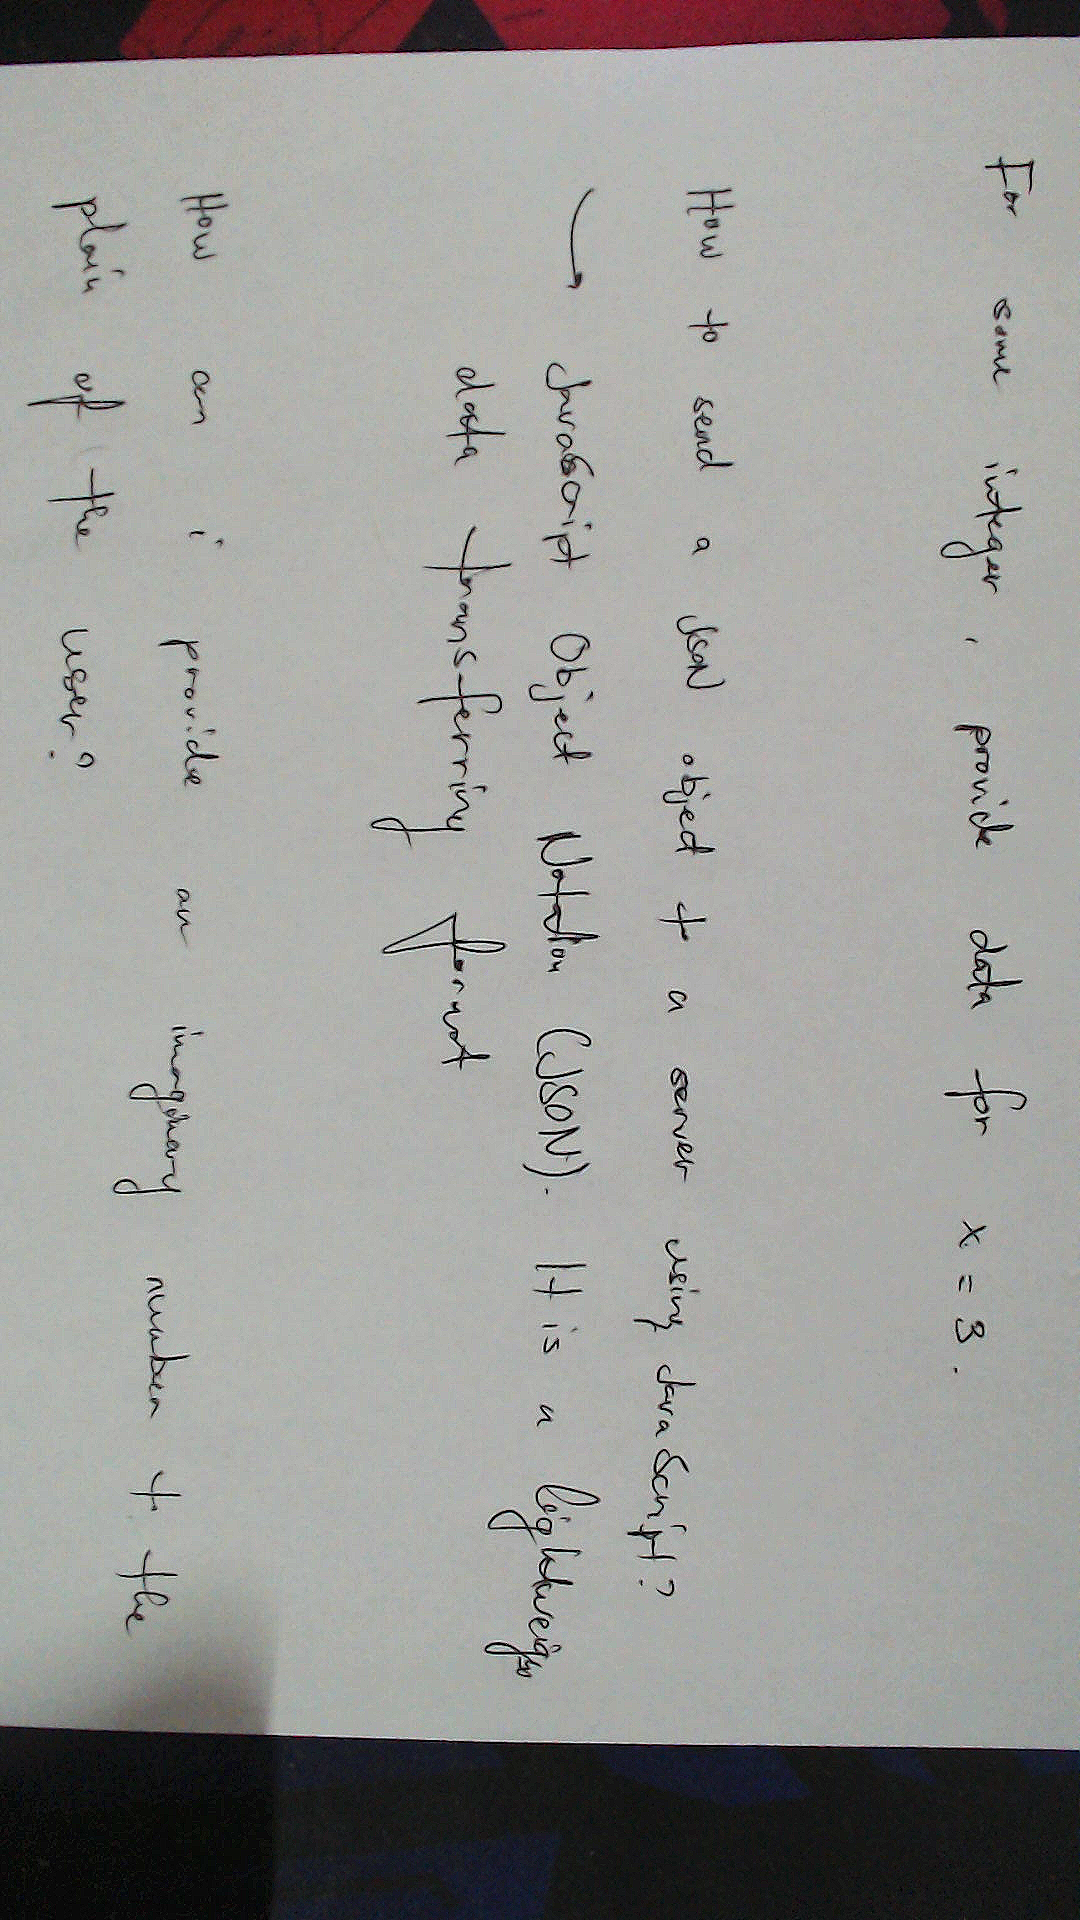 For some integer, provide data for x = 3.
How to send a JSON object to a server using JavaScript?
JavaScript Object Notation (JSON). It is a lightweight
data transferring format
How can i provide an imaginary number to the
plain of the user?